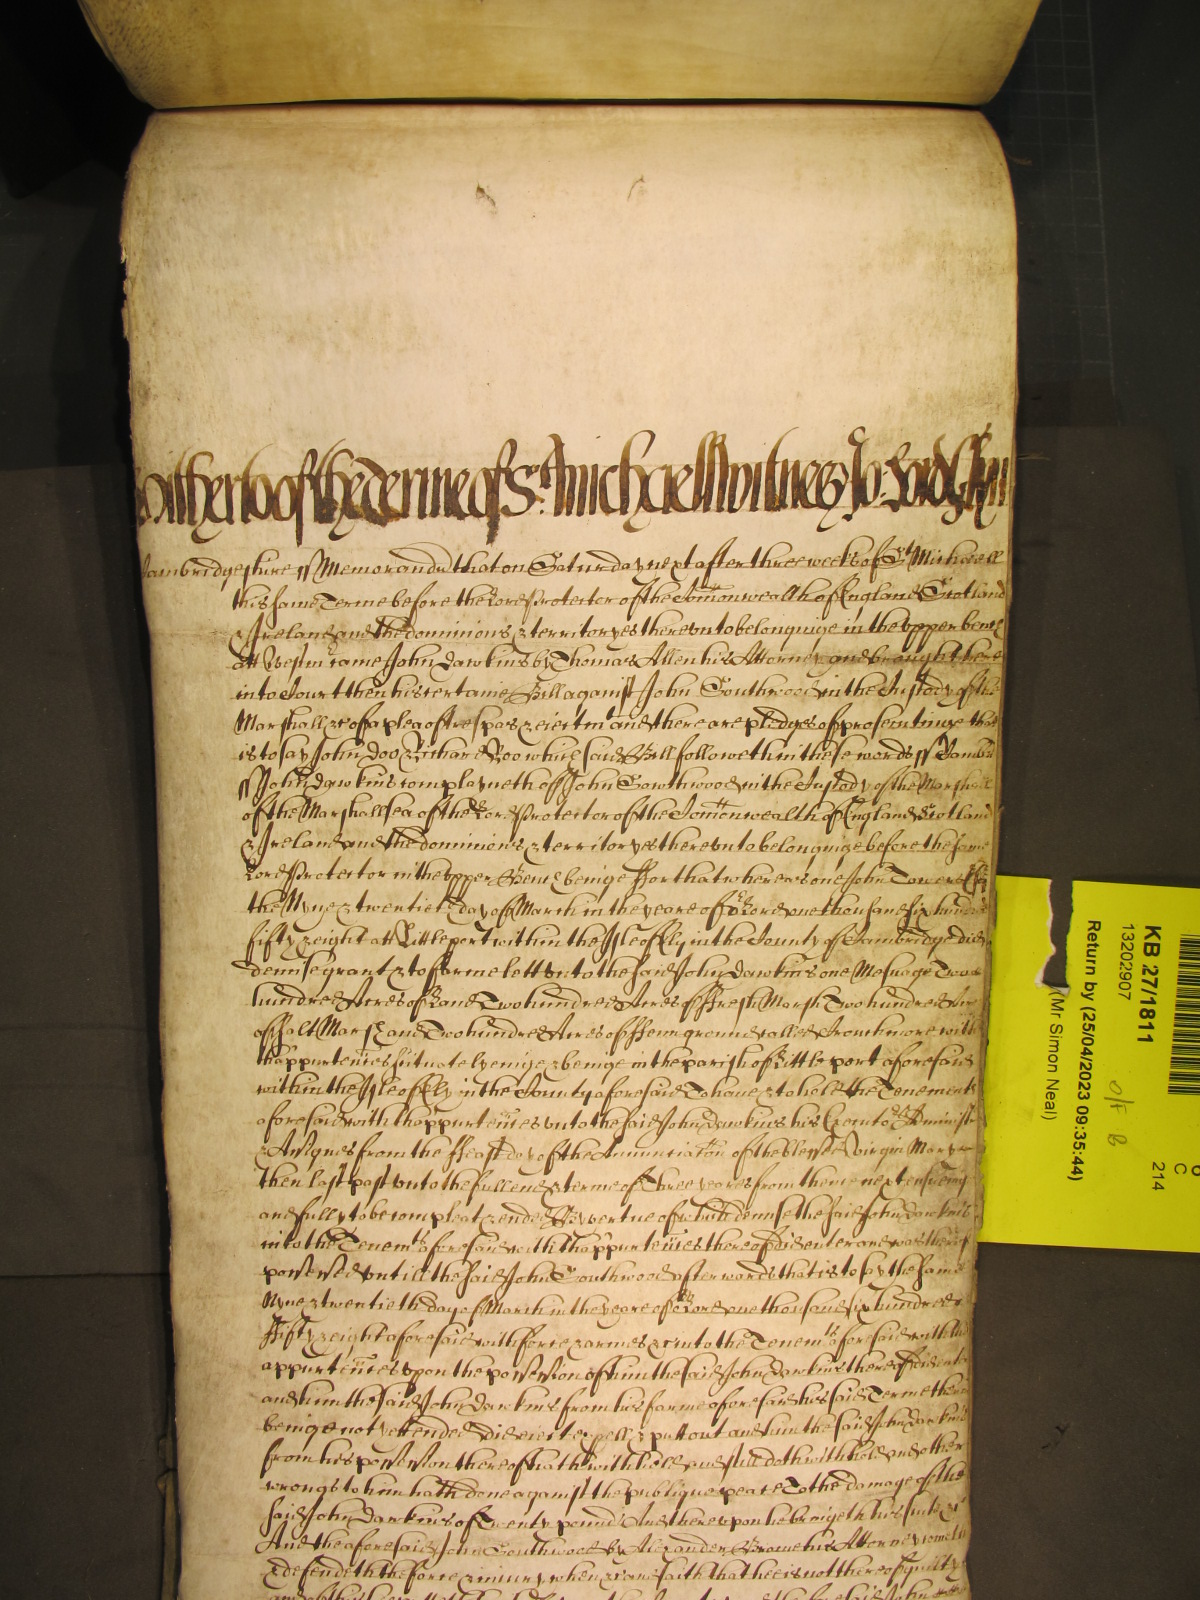 hitherto of the terme of St Michaell Witnes Jo: Lord Glyn
Cambridgeshire ss Memorandu that on Saturday next after three weeks of St Michaell
this same Terme before the Lord Protector of the Comonwealth of England Scotland
& Ireland and the dominions & territoryes thereunto belonginge in the upper bench
att Westmr came John Dawkins by Thomas Allen his Attorney and brought here
into Court then his certaine Bill against John Southwood in the Custody of the
Marshall &c of a plea of trespas & eiectmt and there are pledges of prosecutinge that
is to say John Doo & Richard Roo which said Bill followeth in these words ss Cambr
ss John Dawkins complayneth of John Southwood in the Custody of the Marshall
of the Marshallsea of the Lord Protector of the Comonwealth of England Scotland
& Ireland and the dominions & territoryes thereunto belonginge before the same
Lord Protector in the upper Bench beinge For that whereas one John Towers
the Nyne & twentieth day of March in the yeare of or Lord one thousand six hundred
fifty & eight att Littleport within the Isle of Ely in the County of Cambridge did
demise grant & to farme lett unto the said John Dawkins one Mesuage Two
hundred Acres of Land Two hundred Acres of Fresh Marsh Two hundred Acr
of Salt Marsh and Two hundred Acres of Fenn ground called with
thappurtennces scituate lyeinge & beinge in the parish of Littleport aforesaid
within the Isle of Ely in the County aforesaid To have & to hold the Tenements
aforesaid with thappurtennces unto the said John Dawkins his Executors Administ
& Assignes from the Feast day of the Annunciacon of the blessed Virgin Mary
then last past unto the full end & terme of Three yeares from thence next ensueing
and fully to be compleat & ended By vertue of which demise the said John Dawkins
into the Tenemts aforesaid with thappurtennces thereof did enter and was thereof
possessed untill the said John Southwood afterwards that is to say the same
Nyne & twentieth day of March in the yeare of or Lord one thousand six hundred
Fifty & eight aforesaid with force & armes &c into the Tenemts aforesaid with th
appurtennces upon the possession of him the said John Dawkins thereof did enter
and him the said John Dawkins from his farme aforesaid his said Terme therein
beinge not yet ended did eiect expell & put out and him the said John Dawkins
from his possession thereof hath withheld and still doth withhold and other
wrongs to him hath done against the publique peace To the damage of the
said John Dawkins of Twenty pounds And thereupon he bringeth his suite &c
And the aforesaid John Southwood by Alexander Brome his Attorney cometh
& defendeth the force & iniury when &c and saith that hee is not thereof guilty
KB 27/1811
13202907
Return by (25/04/2023 09:35:44)
(Mr Simon Neal)
C
214